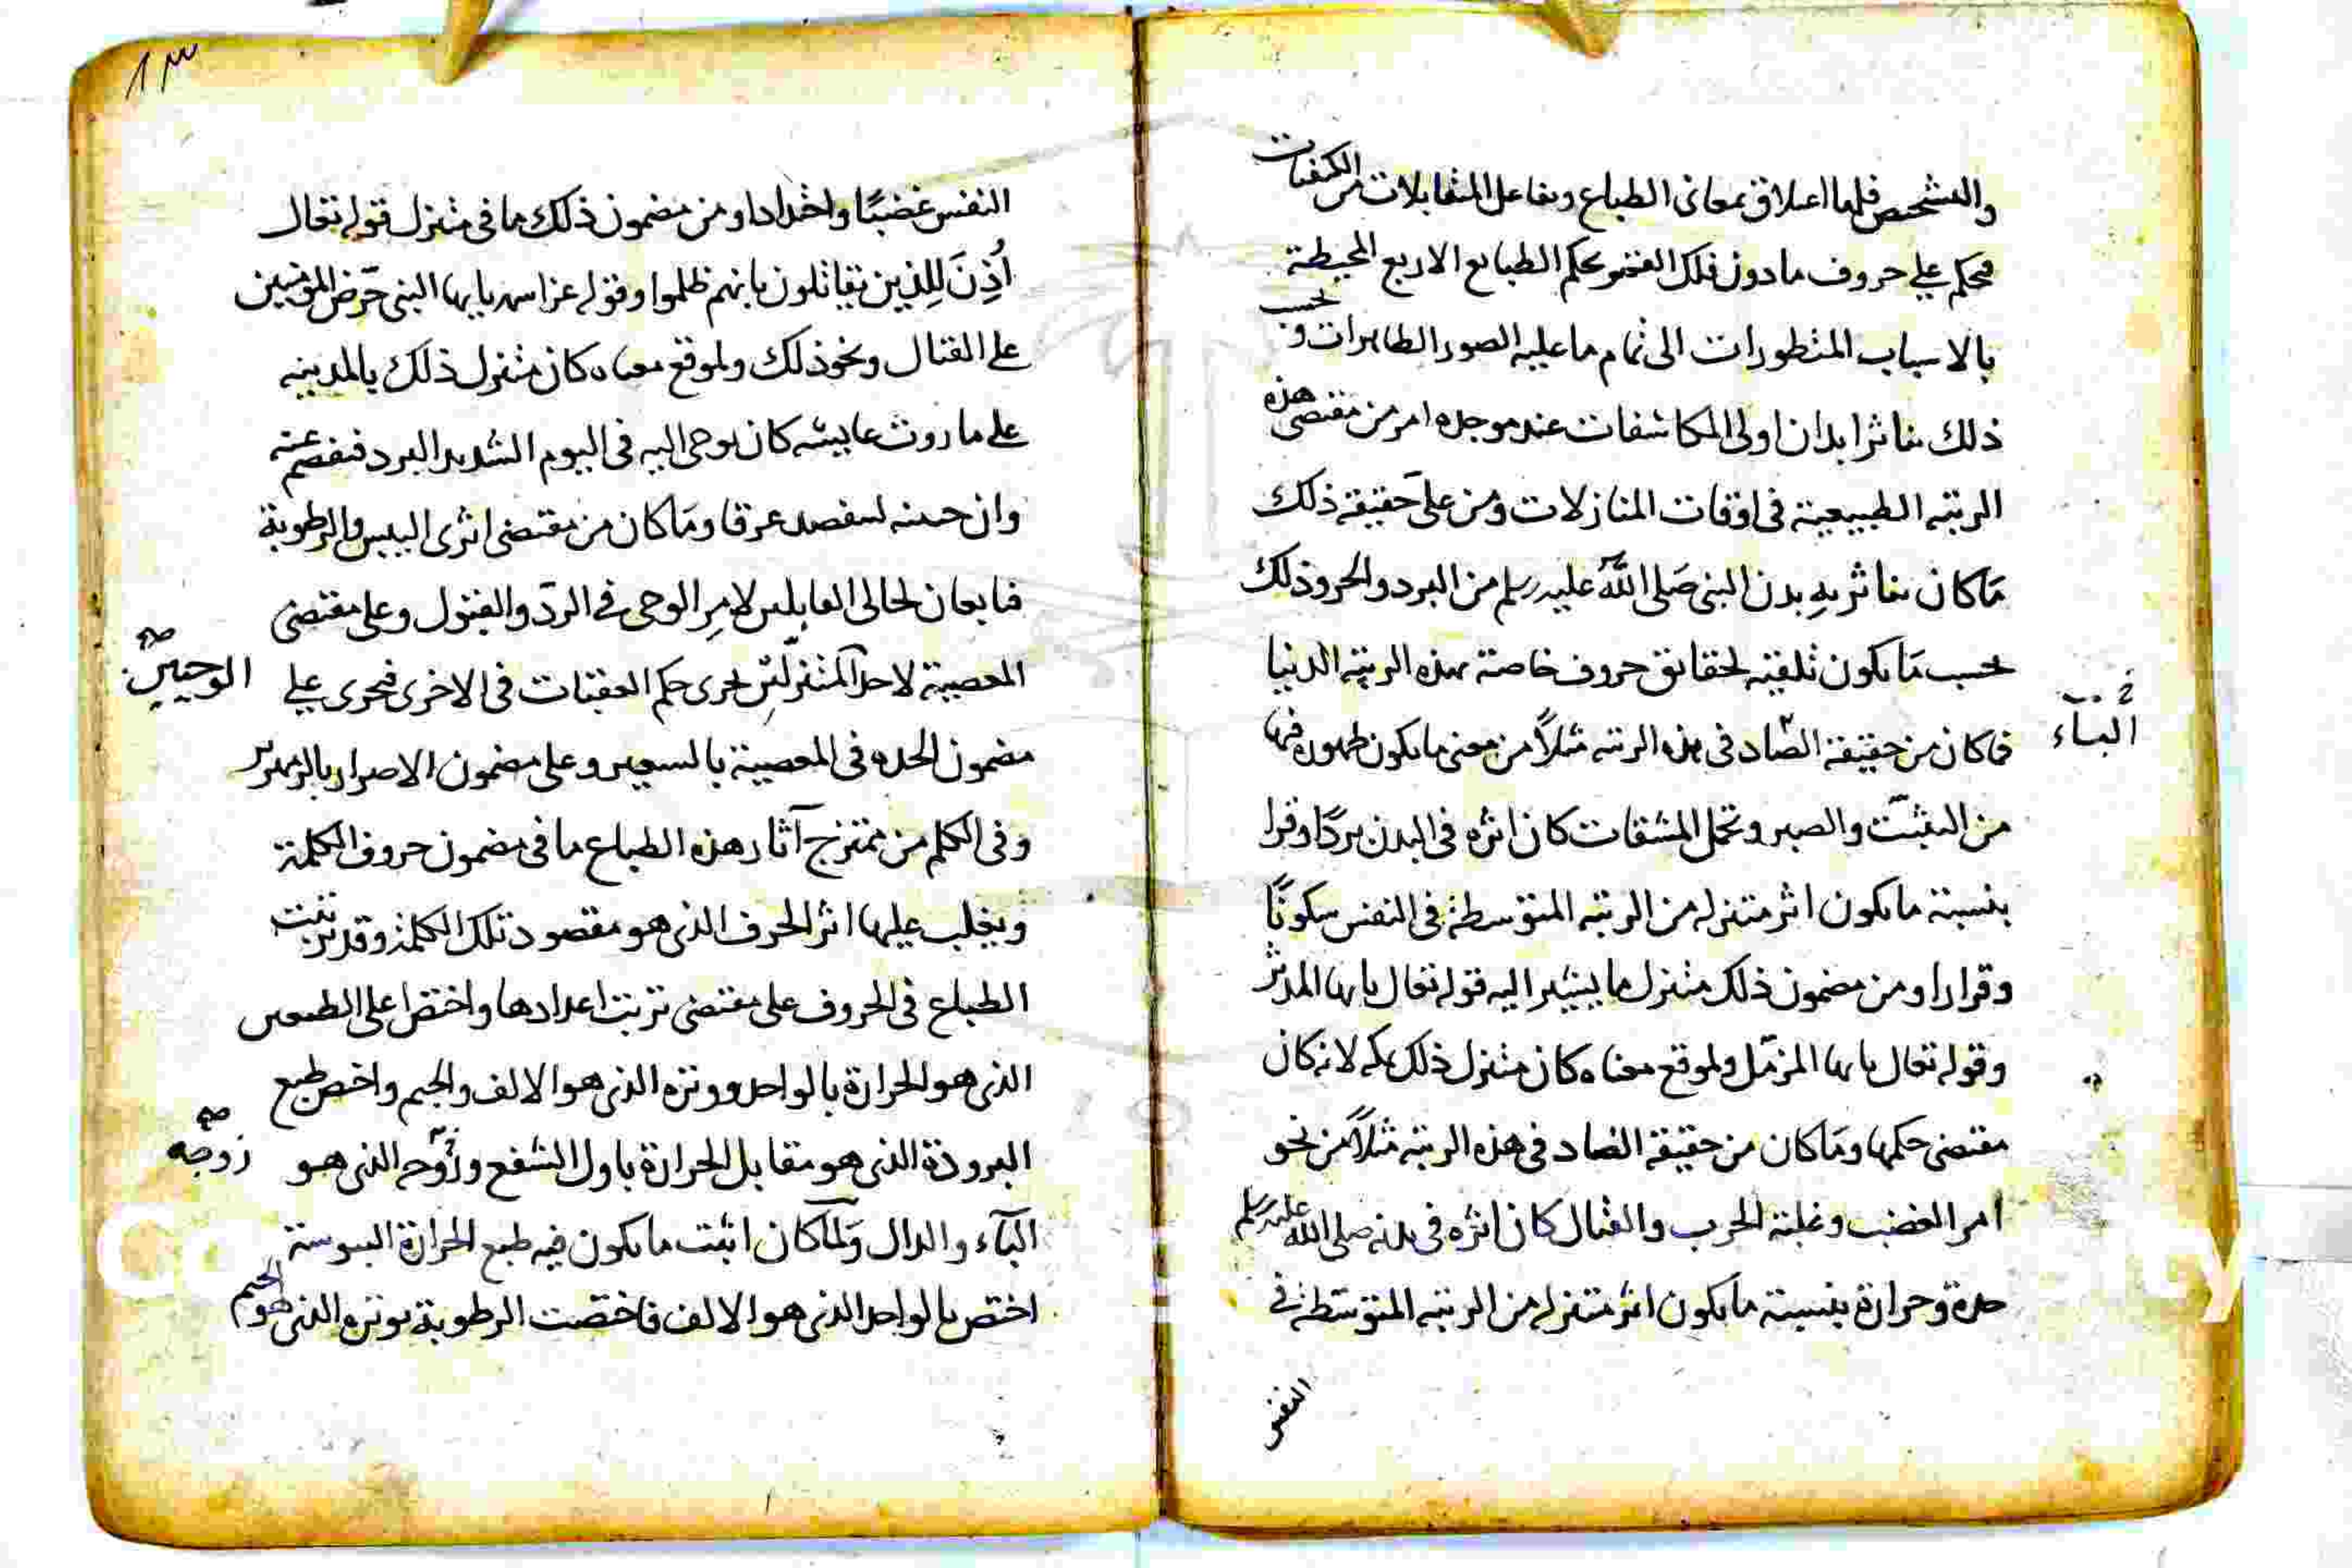 والتشخيص فلها اعلاق بمعانى الطباع وتفاعل المتقابلات من الكيفيات
فحكم على حروف مادون فلك القمر بحكم الطبايع الاربع المحيطة
بالاسباب المتطورات الى تمام ما عليه الصور الظاهرات وبحسب
ذلك يتاثر ابدان اولى المكاشفات عند موجده امر من مقتضى هذه
الرتبه الطبيعية فى اوقات المنازلات ومن على حقيقة ذلك
ما كان يتاثر به بدن النبى صلى الله عليه وسلم من البرد والحر وذلك
بحسب ما يكون تلقيه لحقايق حروف خاصة بهذه الرتبه الدنيا
فما كان من حقيقة الصاد فى هذه الرتبه مثلا من معنى ما يكون ظهوره فيها
من التثبت والصبر وتحمل المشقات كان اثره فى البدن بردا وقرا
بنسبة ما يكون اثر متنزله من الرتبه المتوسطة فى النفس سكونا
وقرارا ومن مضمون ذلك متنزل ما يشير اليه قوله تعالى يايها المدثر
وقوله تعالى يايها المزمل ولموقع معناه كان متنزل ذلك بمكه لانه كان
مقتضى حكمها وما كان من حقيقة الضاد فى هذه الرتبه مثلا من نحو
امر الغضب وغلبة الحرب والقتال كان اثره فى بدنه صلى الله عليه وسلم
حدة وحرارة بنسبة ما يكون اثر متنزله من الرتبه المتوسطة فى
النفس
الباء
٨٣
النفس غضبا واحتدادا ومن مضمون ذلك ما فى متنزل قوله تعالى
اُذِنَ لِلذين يقاتلون بانهم ظلموا وقوله عز اسمه يايها النبى حرض المومنين
على القتال ونحو ذلك ولموقع معناه كان متنزل ذلك بالمدينه
على ما روت عايشه كان يوحى اليه فى اليوم الشديد البرد فيفصم عنه
وان جبينه ليتفصد عرقا وما كان من مقتضى اثرى اليبس والرطوبة
فتابعان لحالى القابلين لامر الوحى فى الرد والقبول وعلى مقتضى
المعصية لاحد المتنزلين يجرى حكم العقبات فى الاخرى فيجرى على
مضمون الحده فى المعصية بالسعير وعلى مضمون الاصرار بالزمهرير
وفى الكلم من ممتزج آثار هذه الطباع ما فى مضمون حروف الكلمة
ويغلب عليها اثر الحرف الذى هو مقصود تلك الكلمة وقد ترتبت
الطباع فى الحروف على مقتضى ترتب اعدادها واختص اعلى الطبعين
الذى هو الحرارة بالواحد ووتره الذى هو الالف والجيم واختص طبع
البرودة الذى هو مقابل الحرارة باول الشفع وزوجه الذى هو
الباء والدال ولما كان اثبت ما يكون فيه طبع الحرارة اليبوسة
اختص بالواحد الذى هو الالف فاختصت الرطوبة بوتره الذى هو الجيم
الوحيين صح
زوجه صح